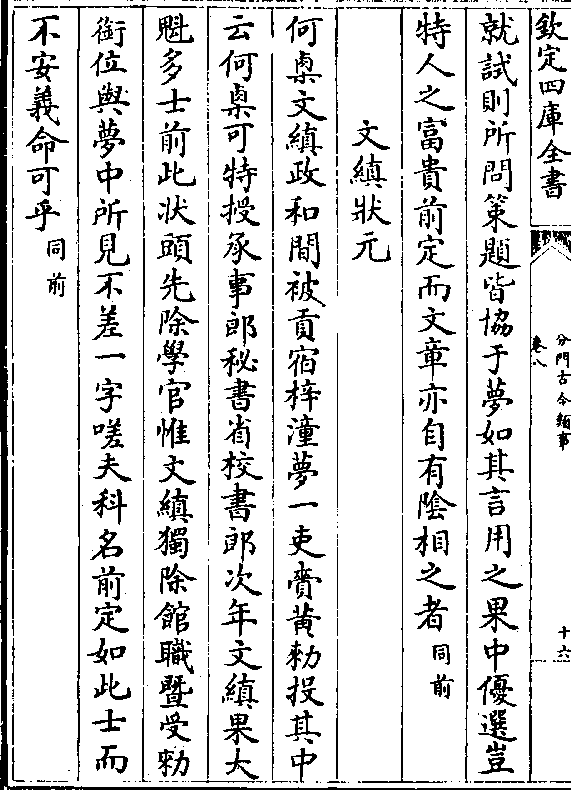 欽定四庫全書
分門古今類事
卷八
十六
就試則所問策題皆協于夢如其言用之果中優選豈
特人之富貴前定而文章亦自有陰相之者同前
文縝狀元
何㮚文縝政和間被貢宿梓潼夢一吏賫黄勅投其中
云何㮚可特授承事郎秘書省校書郎次年文縝果大
魁多士前此狀頭先除學官惟文縝獨除館職暨受勅
銜位與夢中所見不差一字嗟夫科名前定如此士而
不安義命可乎同前